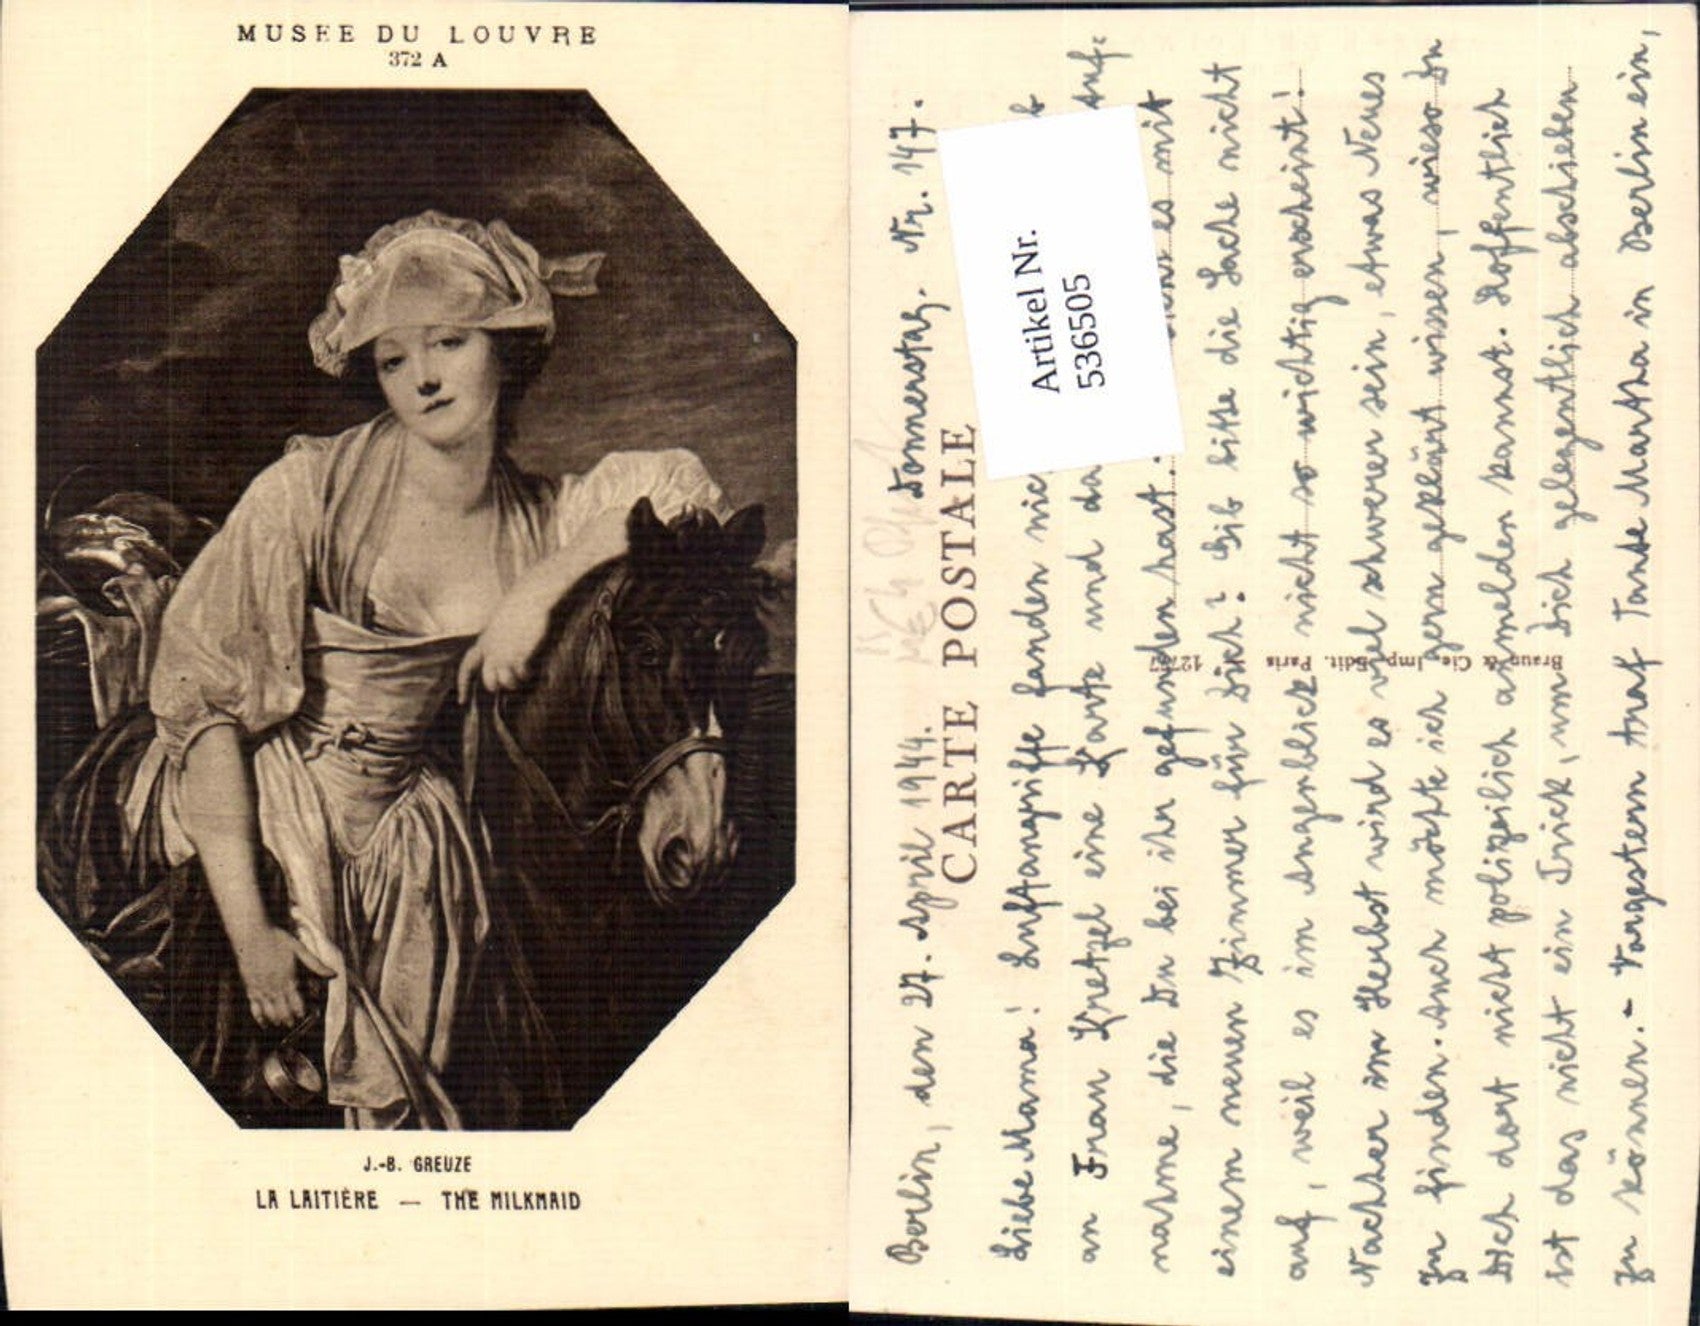 MUSEE DU LOUVRE
372 A
J.-B. GREUZE
LA LAITIÈRE — THE MILKMAID
Berlin, den 27. April 1944. Donnerstag. Nr. 147.
CARTE POSTALE
Artikel Nr.
536505
Liebe Mama! Luftangriffe fanden nic
an Frau Kretzel eine Karte und da Auf=
nahme, die Du bei ihr gefunden hast. es mit
einem neuen Zimmer für Dich? Gib bitte die Sache nicht
auf, weil es im Augenblick nicht so wichtig erscheint!
Nachher im Herbst wird es viel schwerer sein, etwas Neues
zu finden. Auch möchte ich gern geklärt wissen, wieso Du
Dich dort nicht polizeilich anmelden kannst. Hoffentlich
ist das nicht ein Trick, um Dich gelegentlich abschieben
zu können. - Vorgestern traf Tante Martha in Berlin ein,
Braun & Cie, Imp. Edit. Paris